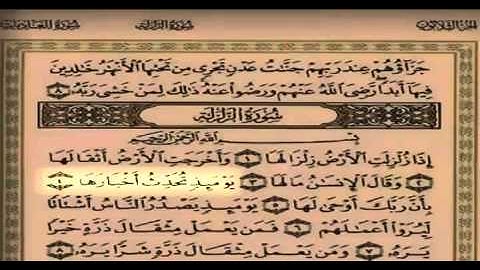 الجزء الثلاثون سورة الزلزلة سورة العاديات
جَزَآؤُهُمْ عِندَ رَبِّهِمْ جَنَّٰتُ عَدْنٍ تَجْرِى مِن تَحْتِهَا ٱلْأَنْهَٰرُ خَٰلِدِينَ
فِيهَآ أَبَدًا رَّضِىَ ٱللَّهُ عَنْهُمْ وَرَضُوا۟ عَنْهُ ذَٰلِكَ لِمَنْ خَشِىَ رَبَّهُۥ ٨
سُورَةُ الزَّلْزَلَةِ
بِسْمِ ٱللَّهِ ٱلرَّحْمَٰنِ ٱلرَّحِيمِ
إِذَا زُلْزِلَتِ ٱلْأَرْضُ زِلْزَالَهَا ١ وَأَخْرَجَتِ ٱلْأَرْضُ أَثْقَالَهَا
٢ وَقَالَ ٱلْإِنسَٰنُ مَا لَهَا ٣ يَوْمَئِذٍ تُحَدِّثُ أَخْبَارَهَا ٤
بِأَنَّ رَبَّكَ أَوْحَىٰ لَهَا ٥ يَوْمَئِذٍ يَصْدُرُ ٱلنَّاسُ أَشْتَاتًا
لِّيُرَوْا۟ أَعْمَٰلَهُمْ ٦ فَمَن يَعْمَلْ مِثْقَالَ ذَرَّةٍ خَيْرًا
يَرَهُۥ ٧ وَمَن يَعْمَلْ مِثْقَالَ ذَرَّةٍ شَرًّا يَرَهُۥ ٨